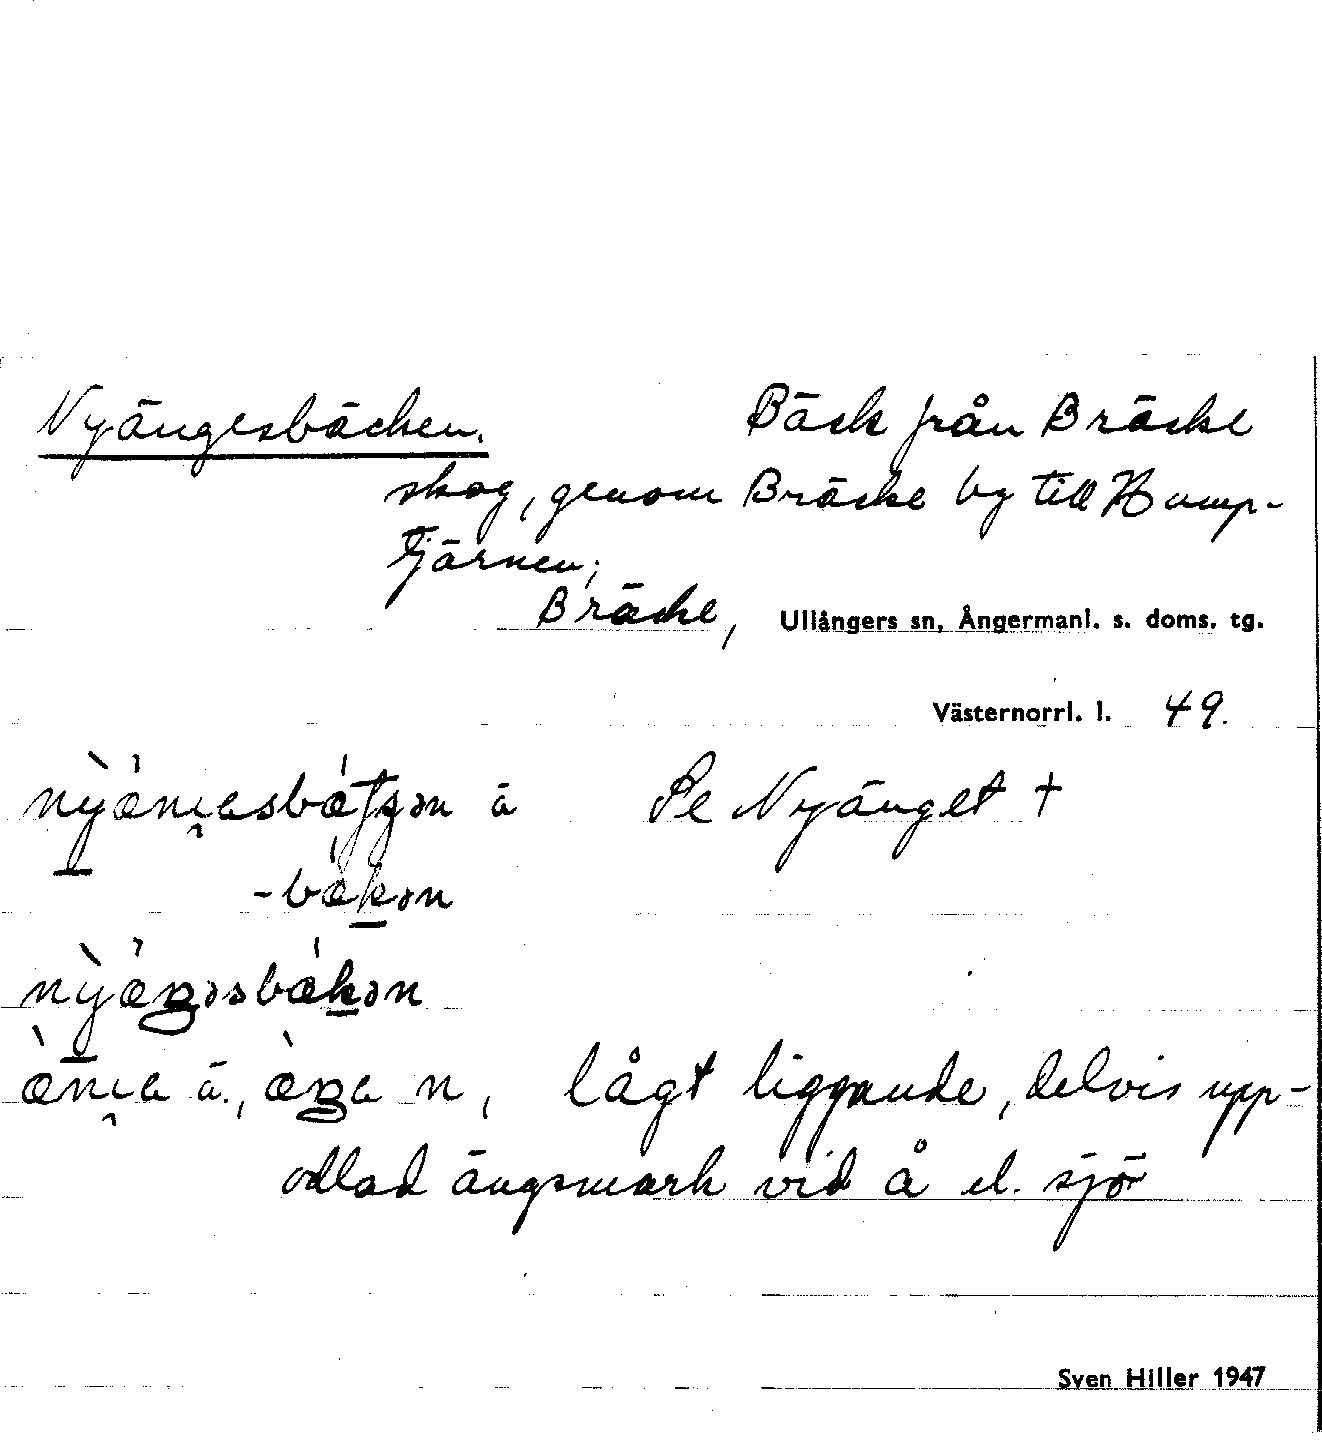 Nyängesbäcken. Bäck från Bräcke
skog, genom Bräcke by till Kamp-
tjärnen;
Bräcke, Ullångers sn, Ångermanl. s. doms. tg.
Västernorrl. l. 49.
ä Se Nyänget +
ä., n, lågt liggande, delvis upp-
odlad ängsmark vid å el. sjö
Sven Hiller 1947